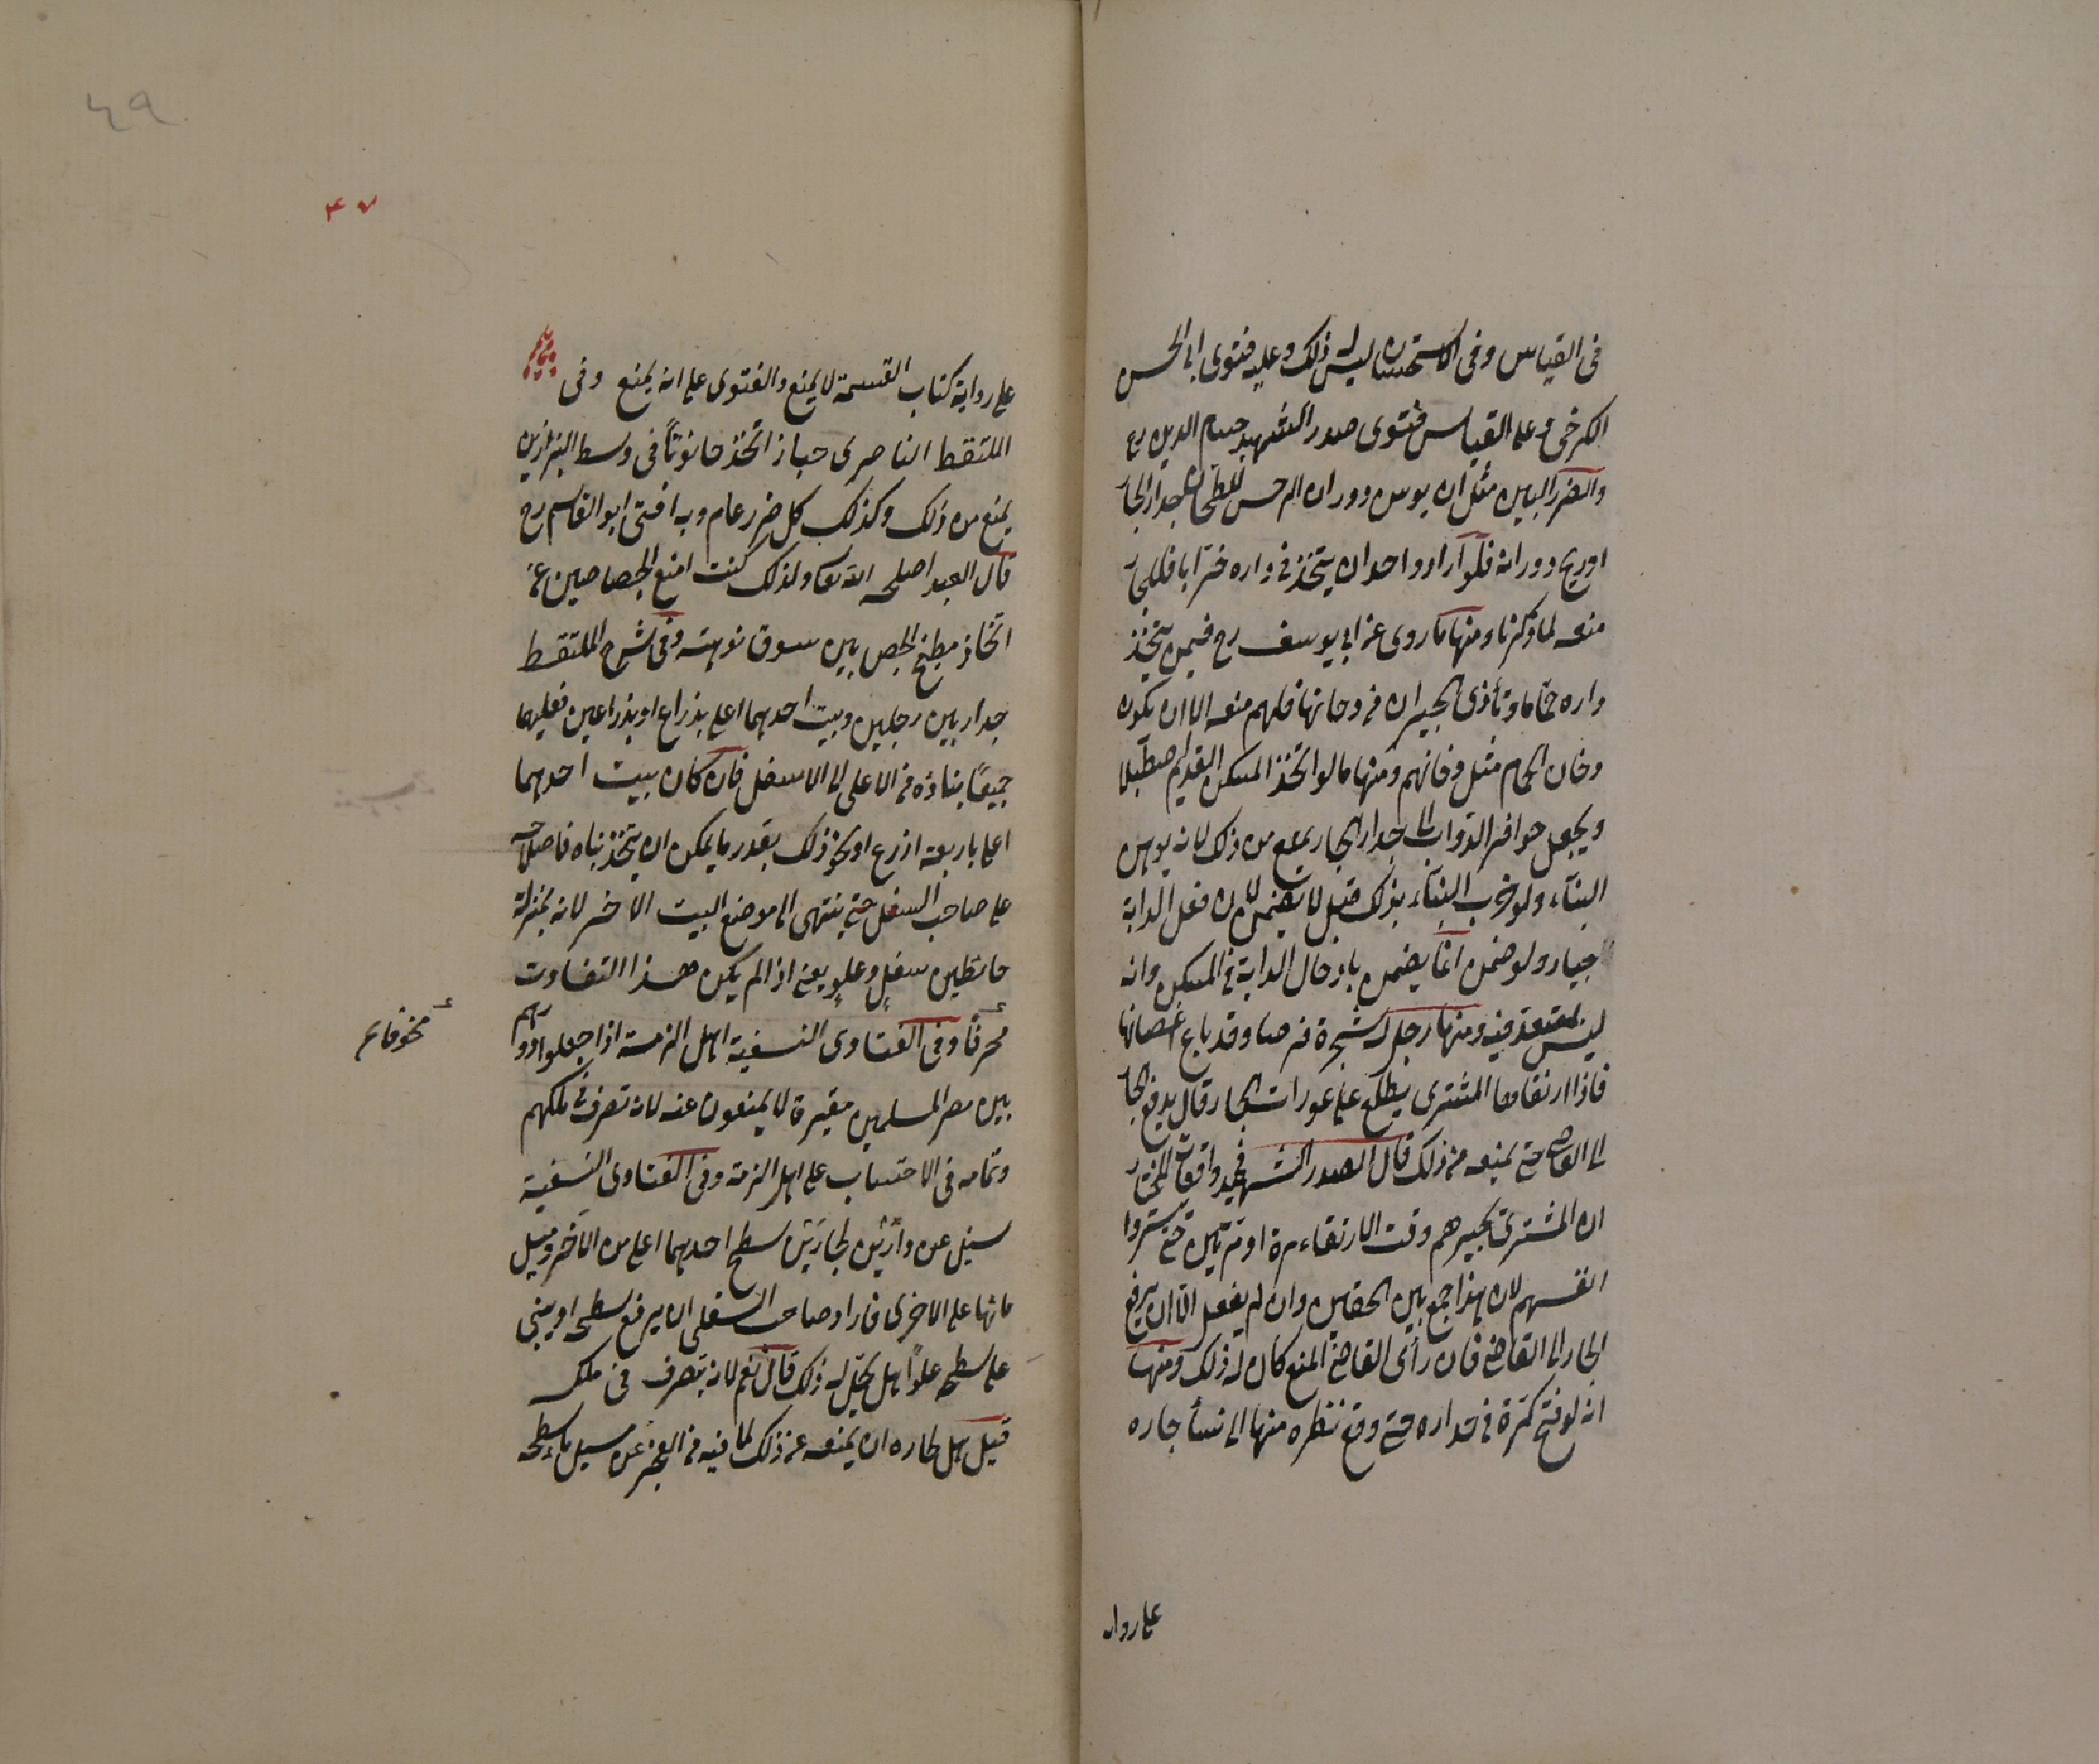 في القياس وفي الاستحسان ليس له ذلك وعليه فتوى ابي الحسن
الكرخي وعلى القياس فتوى صدر الشهيد حسام الدين رح
والضرر البين مثل ان يوهن دوران الرحى للطحان جدار الجار
او ريح دورانه فلو اراد واحد ان يتخذ في داره خرابا فللجار
منعه لما ذكرنا ومنها ما روى عن ابي يوسف رح فيمن يتخذ
داره حماما وتأذى الجيران من دخانها فلهم منعه الا ان يكون
دخان الحمام مثل دخانهم ومنها ما لو اتخذ المسكن القديم اصطبلا
ويجعل حوافر الدواب الى جدار الجار يمنع من ذلك لانه يوهن
البناء ولو خرب البناء بذلك قيل لا يضمن لان فعل الدابة
جبار ولو ضمن انما يضمن بادخال الدابة في المسكن وانه
ليس بمتعد فيه ومنها رجل له شجرة فرصاد وقد باع اغصانها
فاذا ارتقاها المشتري يطلع على عورات الجار قال يدفع الجار
الى القاضي حتى يمنعه من ذلك قال الصدر الشهيد في واقعاته المختار
ان المشتري يخبرهم وقت الارتقاء مرة او مرتين حتى يستروا
انفسهم لان هذا جمع بين الحقين وان لم يفعل الا ان يرفع
الجار الى القاضي فان رأى القاضي المنع كان له ذلك ومنها
انه لو فتح كوة في جداره حتى وقع نظره منها الى نساء جاره
على روايه
٤٩
۴۷
على رواية كتاب القسمة لا يمنع والفتوى على انه يمنع وفي
الملتقط الناصري خباز اتخذ حانوتا في وسط البزازين
يمنع من ذلك وكذلك كل ضرر عام وبه افتى ابو القاسم رح
قال العبد اصلحه الله تعالى ولذلك كنت امنع الجصاصين عن
اتخاذ مطبخ الجص بين سوق نوهته وفي شرح الملتقط
جدار بين رجلين وبيت احدهما اعلى بذراع او بذراعين فعليهما
جميعا بناؤه من الاعلى الى الاسفل فان كان بيت احدهما
اعلى باربعة اذرع او نحو ذلك بقدر ما يمكن ان يتخذ بناه فاصلاحه
على صاحب السفل حتى ينتهى الى موضع البيت الاخر لانه بمنزلة
حائطين سفل وعلو يعنى اذا لم يكن هذا التفاوت
محرفا وفي الفتاوى النسفية اهل الذمة اذا جعلوا دورهم
بين مصر المسلمين مقبرة لا يمنعون عنه لانه تصرف في ملكهم
وتمامه في الاحتساب على اهل الذمة وفي الفتاوى النسفية
سئل عن دارين لجارين سطح احدهما اعلى من الاخر ومسيل
مائها على الاخرى فاراد صاحب السفلى ان يرفع سطحه او يبني
على سطحه علوا هل يحل له ذلك قال نعم لانه تصرف في ملكه
قيل هل لجاره ان يمنعه عن ذلك لما فيه من العجز عن مسيل ماء سطحه